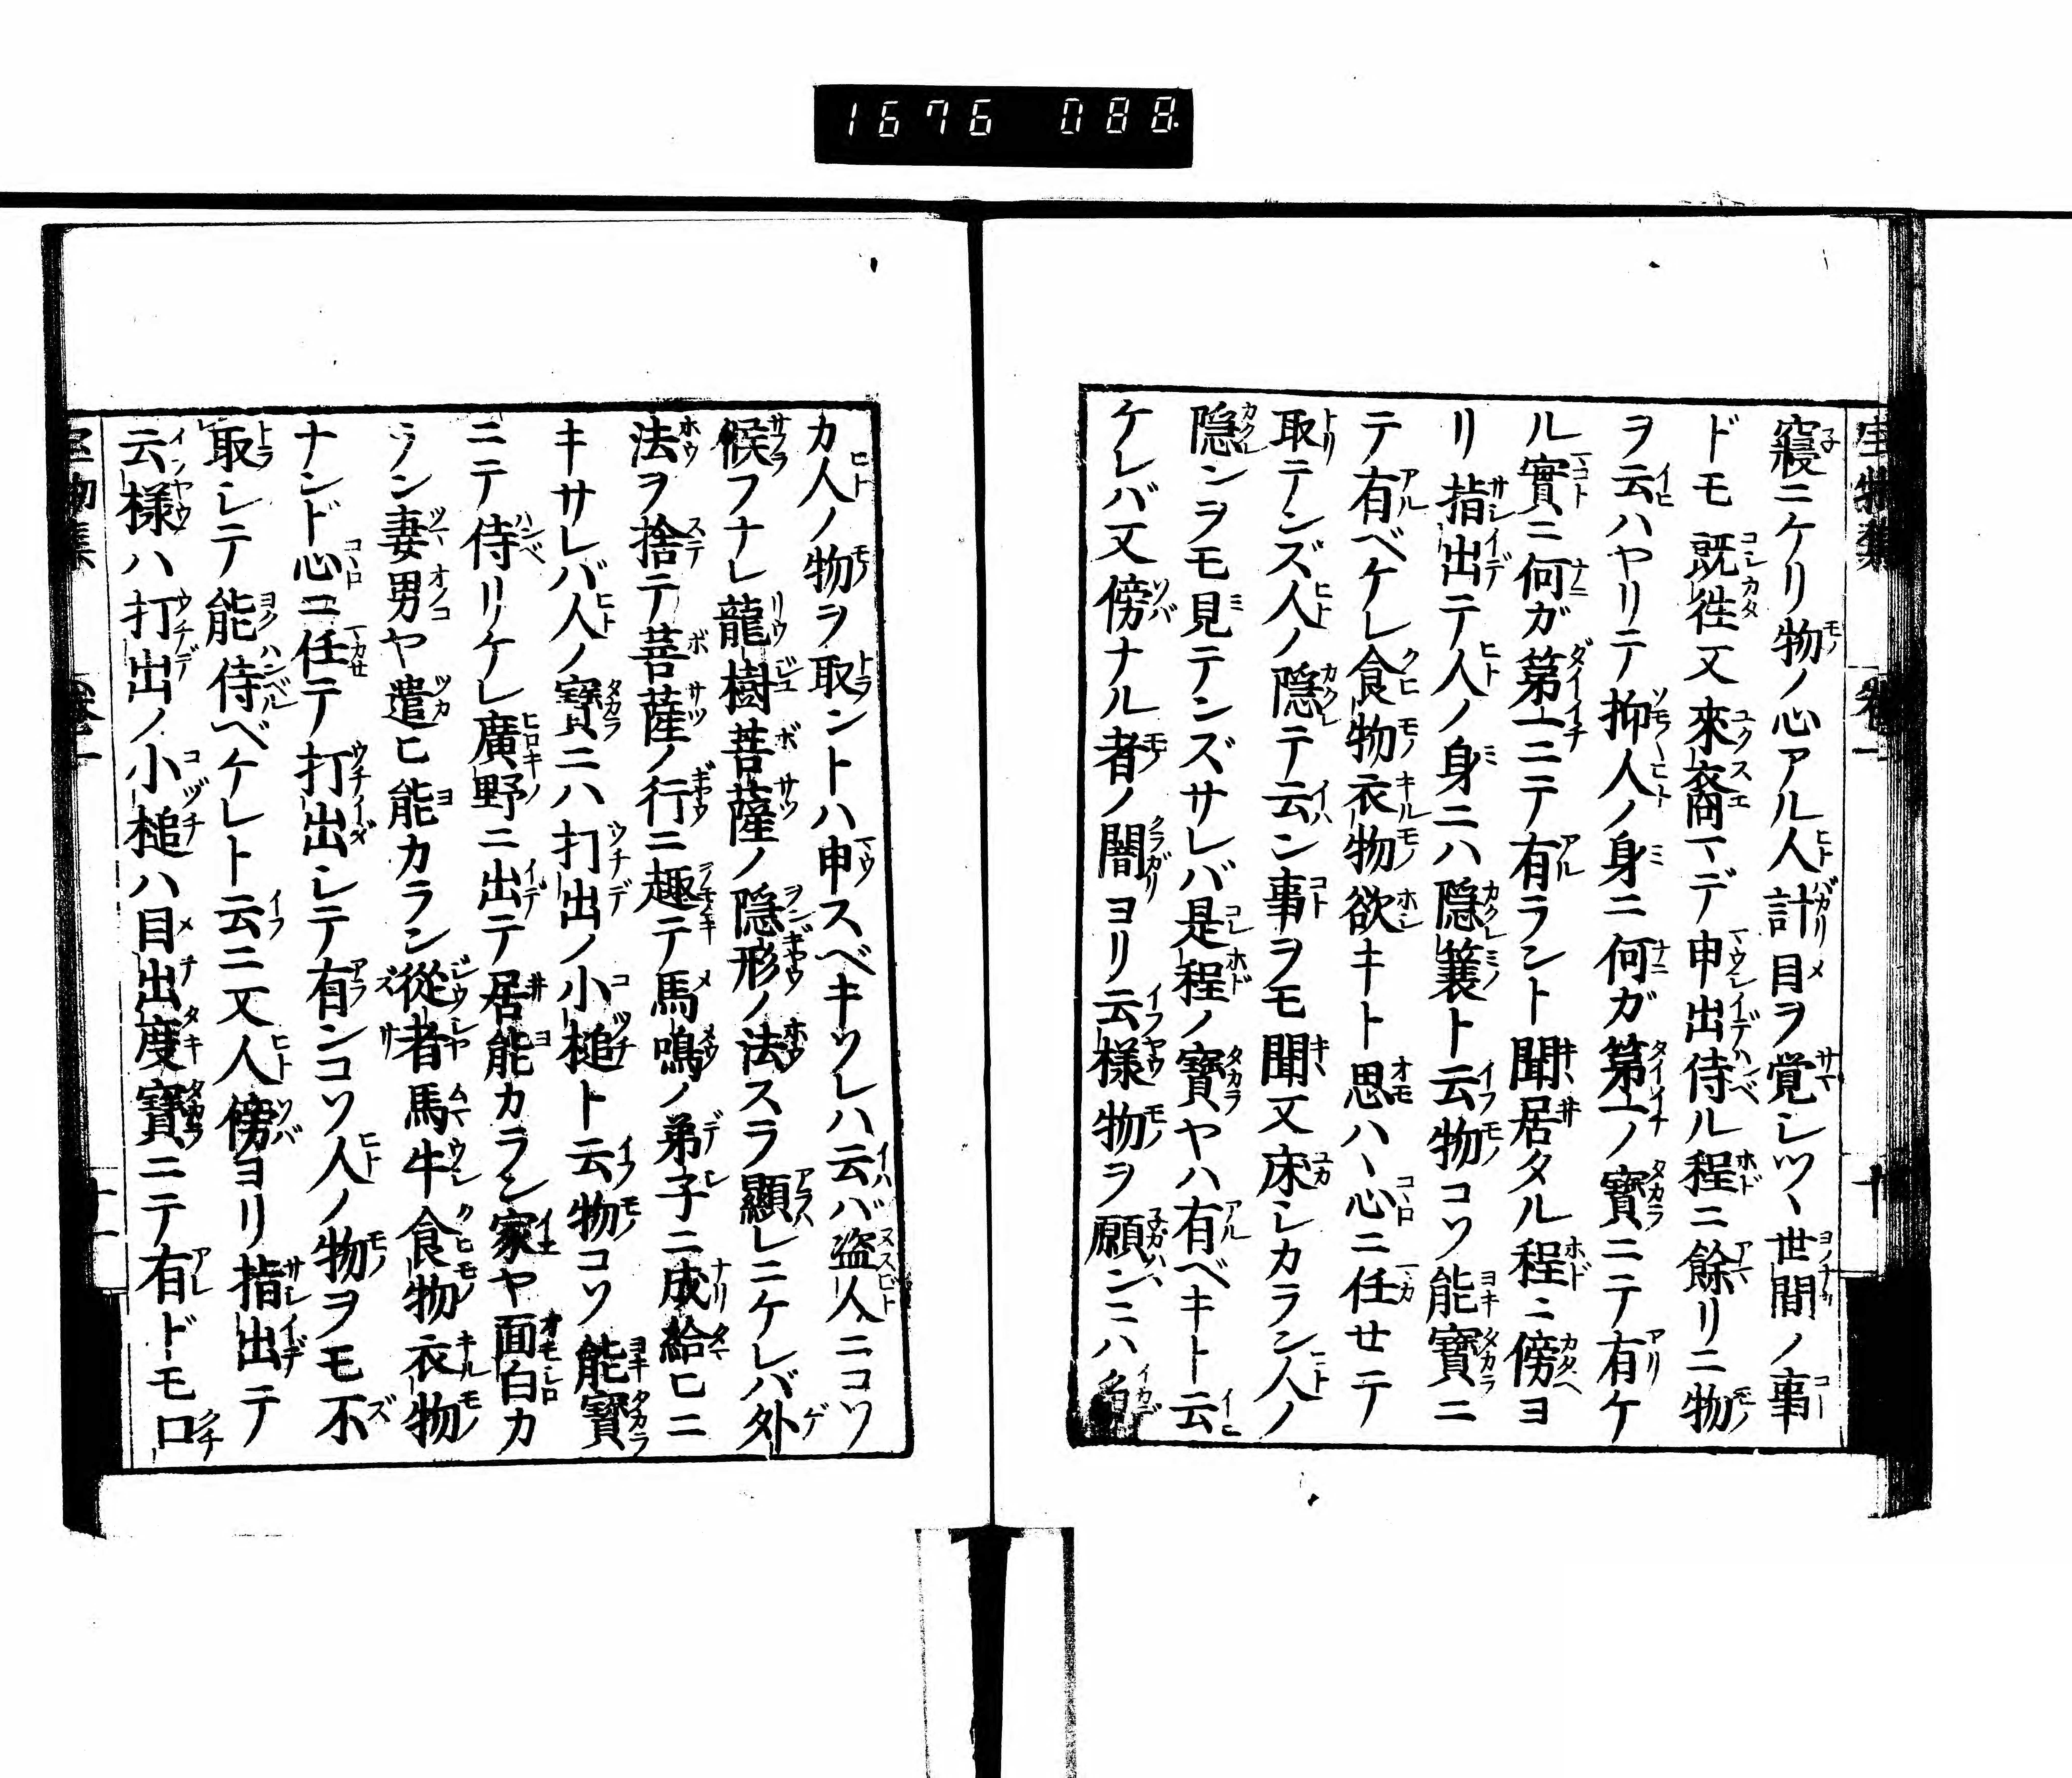 1676 088
寳物集 巻一 十
寢ニケリ物ノ心アル人計目ヲ覚シツヽ世間ノ事
ドモ既徃又來裔マデ申出侍ル程ニ餘リニ物
ヲ云ハヤリテ抑人ノ身ニ何ガ第一ノ寳ニテ有ケ
ル實ニ何ガ第一ニテ有ラント聞居タル程ニ傍ヨ
リ指出テ人ノ身ニハ隠簑ト云物コソ能寳ニ
テ有ベケレ食物衣物欲キト思ハヽ心ニ任せテ
取テンズ人ノ隠テ云ン事ヲモ聞又床シカラン人ノ
隠ンヲモ見テンズサレバ是程ノ寳ヤハ有ベキト云
ケレバ又傍ナル者ノ闇ヨリ云様物ヲ願ンニハ
カ人ノ物ヲ取ントハ申スベキソレハ云バ盗人ニコソ
候フナレ龍樹菩薩ノ隠形ノ法スラ顯レニケレバ外
法ヲ捨テ菩薩ノ行ニ趣テ馬鳴ノ弟子ニ成給ヒニ
キサレバ人ノ寳ニハ打出ノ小槌ト云物コソ能寳
ニテ侍リケレ廣野ニ出テ居能カラン家ヤ面白カ
ラン妻男ヤ遣ヒ能カラン從者馬牛食物衣物
ナンド心ニ任テ打出シテ有ンコソ人ノ物ヲモ不
取シテ能侍ベケレト云ニ又人傍ヨリ指出テ
云様ハ打出ノ小槌ハ目出度寳ニテ有ドモ口
十一